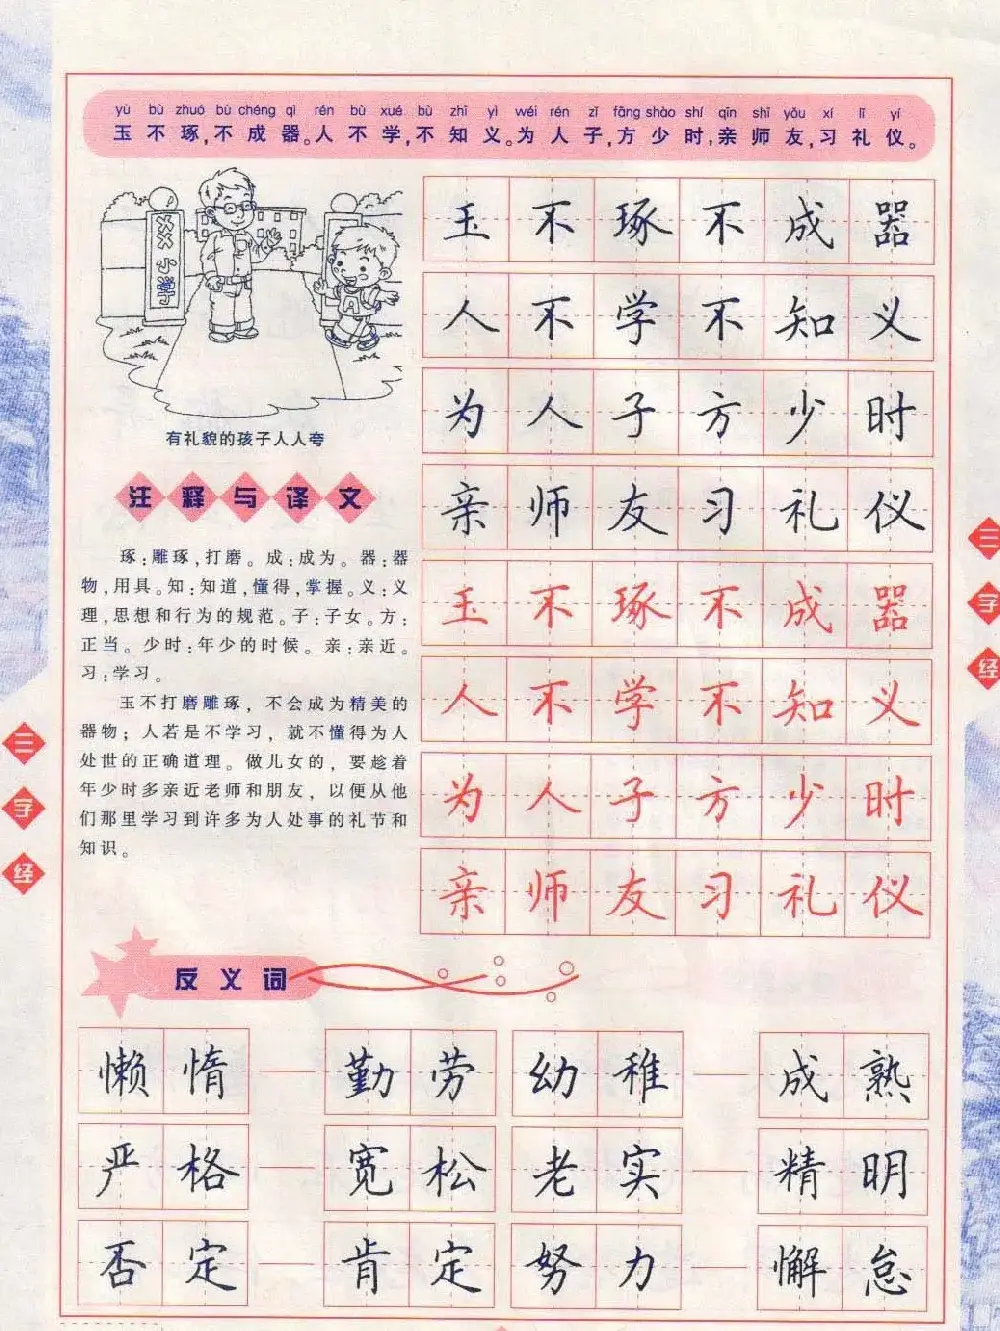 yù bù zhuó bù chéng qì rén bù xué bù zhī yì wéi rén zǐ fāng shào shí qīn shī yǒu xí lǐ yí
玉不琢,不成器。人不学,不知义。为人子,方少时,亲师友,习礼仪。
XXX小学
有礼貌的孩子人人夸
注释与译文
琢:雕琢,打磨。成:成为。器:器
物,用具。知:知道,懂得,掌握。义:义
理,思想和行为的规范。子:子女。方:
正当。少时:年少的时候。亲:亲近。
习:学习。
玉不打磨雕琢,不会成为精美的
器物;人若是不学习,就不懂得为人
处世的正确道理。做儿女的,要趁着
年少时多亲近老师和朋友,以便从他
们那里学习到许多为人处事的礼节和
知识。
玉不琢不成器
人不学不知义
为人子方少时
亲师友习礼仪
玉不琢不成器
人不学不知义
为人子方少时
亲师友习礼仪
三字经
三字经
反义词
懒惰——勤劳 幼稚——成熟
严格——宽松 老实——精明
否定——肯定 努力——懈怠